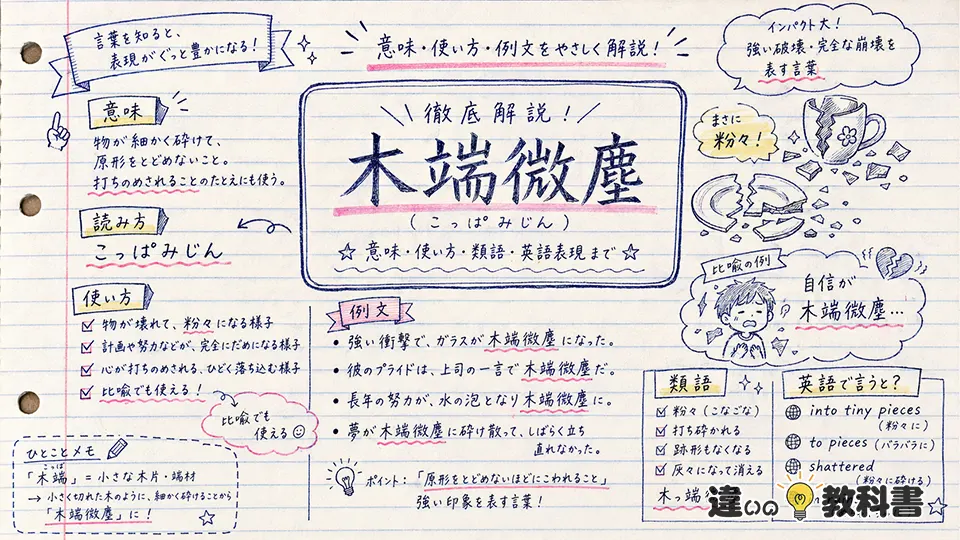 言葉を知ると、
表現がぐっと豊かになる!
意味・使い方・例文をやさしく解説!
インパクト大!
強い破壊・完全な崩壊を
表す言葉
徹底解説!
木端微塵
(こっぱみじん)
☆意味・使い方・類語・英語表現まで☆
意味
物が細かく砕けて、
原形をとどめないこと。
打ちのめされることのたとえにも使う。
読み方
こっぱみじん
使い方
物が壊れて、粉々になる様子
計画や努力などが、完全にだめになる様子
心が打ちのめされる、ひどく落ち込む様子
比喩でも使える!
比喩でも
使える☺
ひとことメモ
こっぱ
「木端」=小さな木片・端材
→小さく切れた木のように、細かく砕けることから
「木端微塵」に!
例文
・強い衝撃で、ガラスが木端微塵になった。
・彼のプライドは、上司の一言で木端微塵だ。
・長年の努力が、水の泡となり木端微塵に。
・夢が木端微塵に砕け散って、しばらく立ち
直れなかった。
ポイント:「原形をとどめないほどにこわれること」
強い印象を表す言葉!
まさに
粉々!
比喩の例
自信が
木端微塵…
類語
粉々(こなごな)
打ち砕かれる
跡形もなくなる
灰々になって消える
木っ端
英語で言うと?
into tiny pieces
(粉々に)
to pieces (バラバラに)
shattered
(粉々に砕ける)
違いの教科書